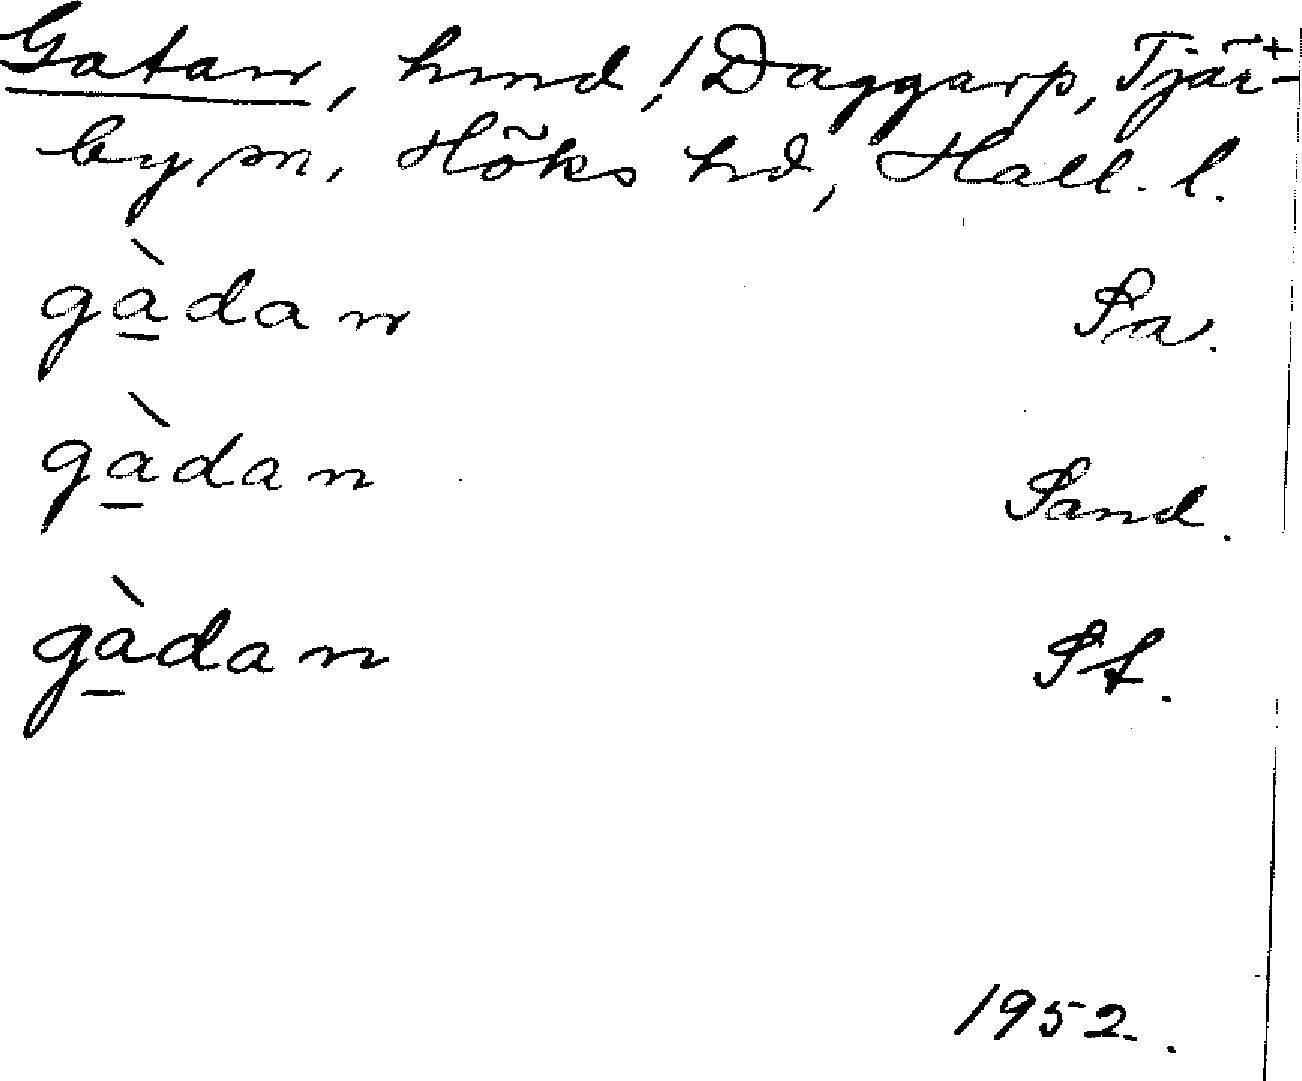 Gatan, hmd, 1 Daggarp, Tjär-
by sn, Höks hd, Hall. l.
gàdan Sa.
gàdan Sand.
gàdan St.
1952.